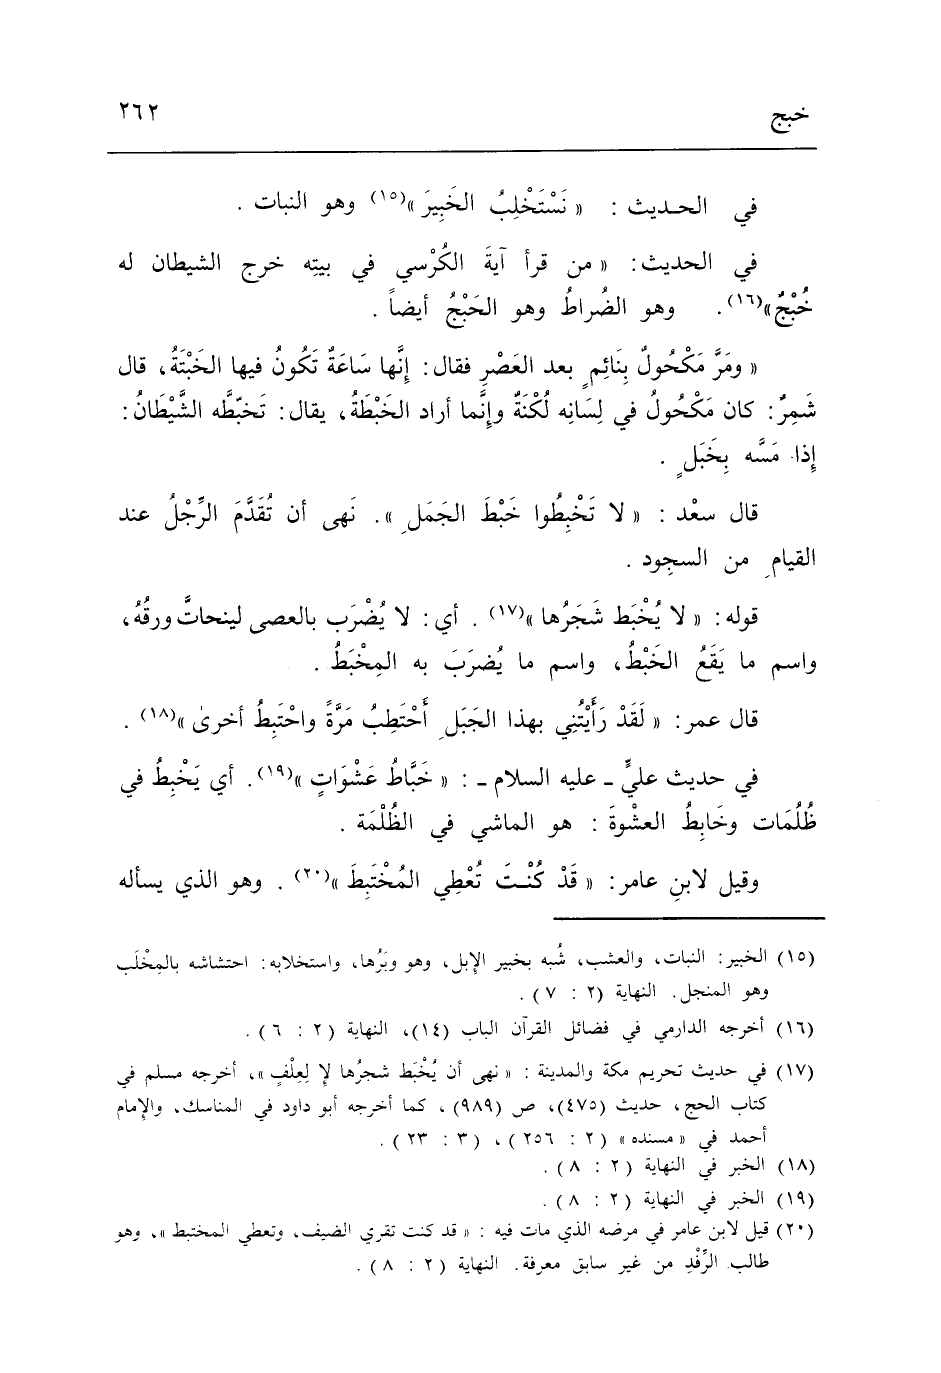 خبج
٢٦٢
في الحـديث : « نَسْتَخْلِبُ الخَبِيرَ »(١٥) وهو النبات .
في الحديث: « من قرأ آيةَ الكُرْسي في بيتِه خرج الشيطان له
خُبْجٌ»(١٦). وهو الضُراطُ وهو الحَبْجُ أيضاً .
« ومَرَّ مَكْحُولٌ بِنَائِمٍ بعد العَصْرِ فقال: إنَّها سَاعَةٌ تَكُونُ فيها الخَبْتَةُ، قال
شَمِرٌ: كان مَكْحُولُ في لِسَانِه لُكْنَةٌ وإنَّما أراد الخَبْطَةُ، يقال: تَخبَّطَه الشَّيْطَانُ:
إذا مَسَّه بِخَبَلٍ .
قال سعْد : « لا تَخْبِطُوا خَبْطَ الجَمَلِ ». نَهى أن تُقَدَّمَ الرِّجْلُ عند
القيامِ من السجود .
قوله: « لا يُخْبَط شَجَرُها »(١٧) . أي: لا يُضْرَب بالعصى لينحاتَّ ورقُهُ،
واسم ما يَقَعُ الخَبْطُ، واسم ما يُضرَبَ به المِخْبَطُ .
قال عمر: « لَقَدْ رَأَيْتُنِي بهذا الجَبَلِ أَحْتَطِبُ مَرَّةً واحْتَبِطُ أخرىٰ »(١٨) .
في حديث عليٍّ ـ عليه السلام ـ : « خَبَّاطُ عَشْوَاتٍ »(١٩). أي يَخْبِطُ في
ظُلُمَات وخَابِطُ العشْوةَ : هو الماشي في الظُلْمَة .
وقيل لابنِ عامر: « قَدْ كُنْـتَ تُعْطِي المُخْتَبِطَ »(٢٠) . وهو الذي يسأله
(١٥) الخبير: النبات، والعشب، شُبه بخبير الإبل، وهو وبَرُها، واستخلابه: احتشاشه بالمِخْلَب
وهو المنجل. النهاية (٢ : ٧) .
(١٦) أخرجه الدارمي في فضائل القرآن الباب (١٤)، النهاية (٢ : ٦) .
(١٧) في حديث تحريم مكة والمدينة : « نهى أن يُخْبَط شجرُها لإ لِعِلْفٍ »، أخرجه مسلم في
كتاب الحج، حديث (٤٧٥)، ص (٩٨٩) ، كما أخرجه أبو داود في المناسك، والإمام
أحمد في « مسنده » (٢ : ٢٥٦) ، (٣ : ٢٣) .
(١٨) الخبر في النهاية (٢ : ٨) .
(١٩) الخبر في النهاية (٢ : ٨) .
(٢٠) قيل لابن عامر في مرضه الذي مات فيه : « قد كنت تقري الضيف، وتعطي المختبط »، وهو
طالب الرِّفْدِ من غير سابق معرفة. النهاية (٢ : ٨) .